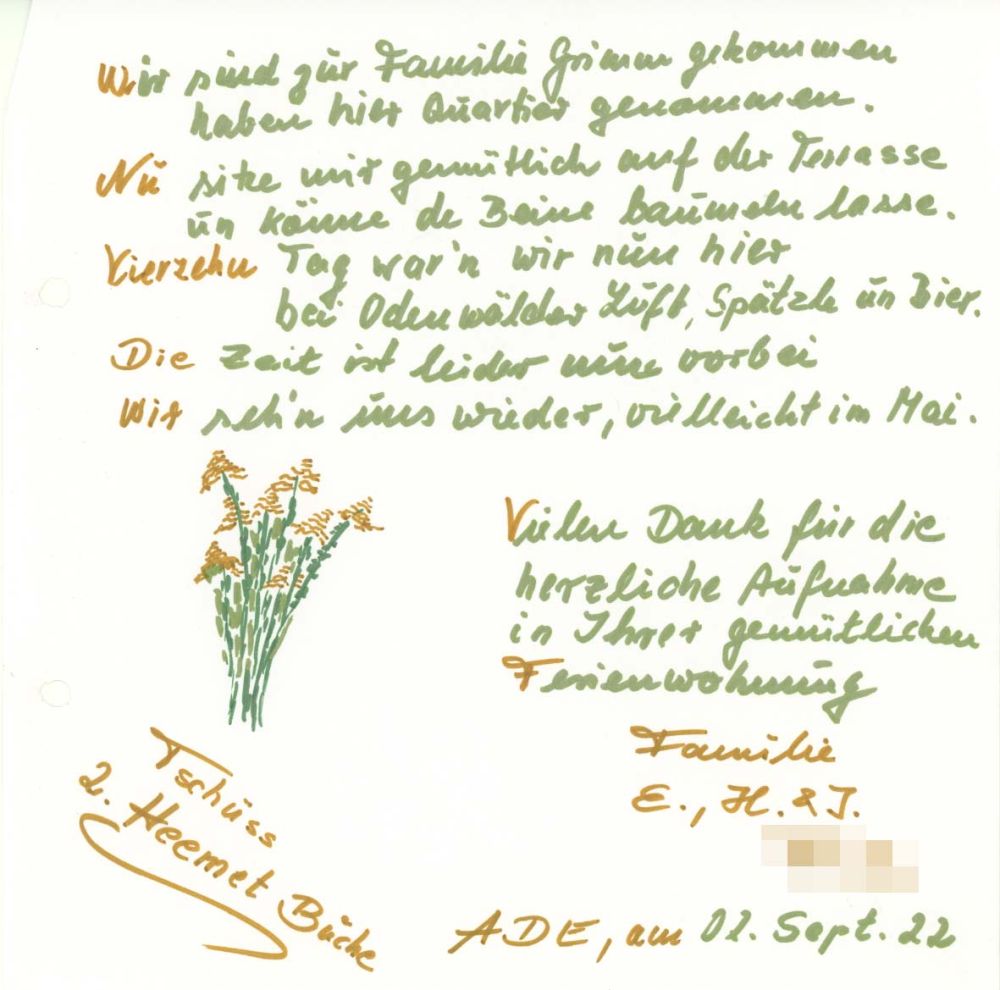 Wir sind zur Familie Grimm gekommen
haben hier Quartier genommen.
Nu sitze mir gemütlich auf der Terrasse
un könne de Beine baumeln lasse.
Vierzehn Tag war'n wir nun hier
bei Odenwälder Luft, Spätzle un Bier.
Die Zeit ist leider nun vorbei
Wir seh'n uns wieder, vielleicht im Mai.
Vielen Dank für die
herzliche Aufnahme
in Ihrer gemütlichen
Ferienwohnung
Familie
E., H. & J.
Tschüss
2. Heemet Buche
ADE, am 01. Sept. 22